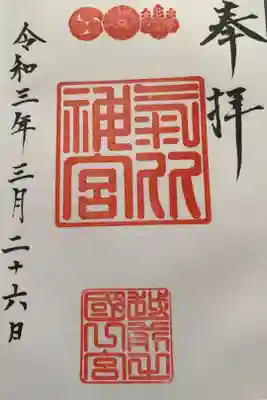 奉拝
氣比
神宮
越前之
國一宮
令和三年三月二十六日